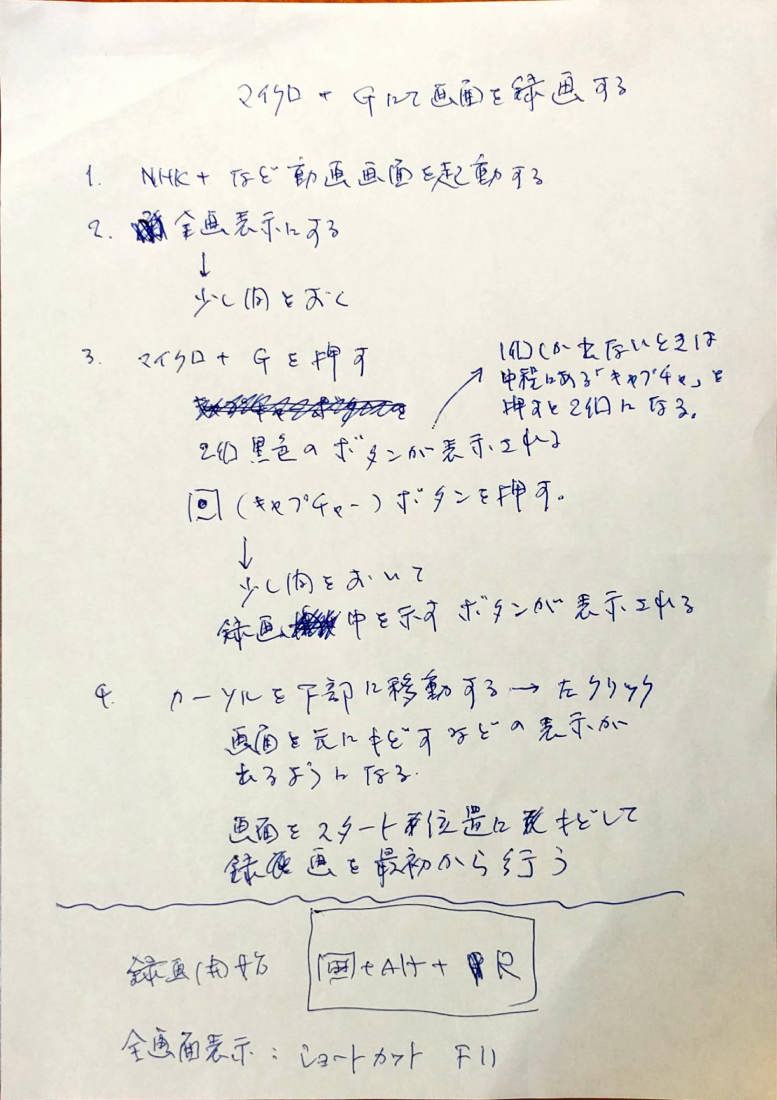 マイクロ + Gにて画面を録画する
1. NHK+ など動画画面を起動する
2. 全画表示にする
↓
少し間をおく
3. マイクロ + G を押す
1個しか出ないときは
中程にある「キャプチャ」を
押すと2個になる。
2個黒色のボタンが表示される
(キャプチャー) ボタンを押す。
↓
少し間をおいて
録画中を示すボタンが表示される
4. カーソルを下部に移動する → 左クリック
画面を元にもどすなどの表示が
出るようになる.
画面をスタート位置にもどして
録画を最初から行う
録画開始 田+Alt+R
全画面表示 : ショートカット F11